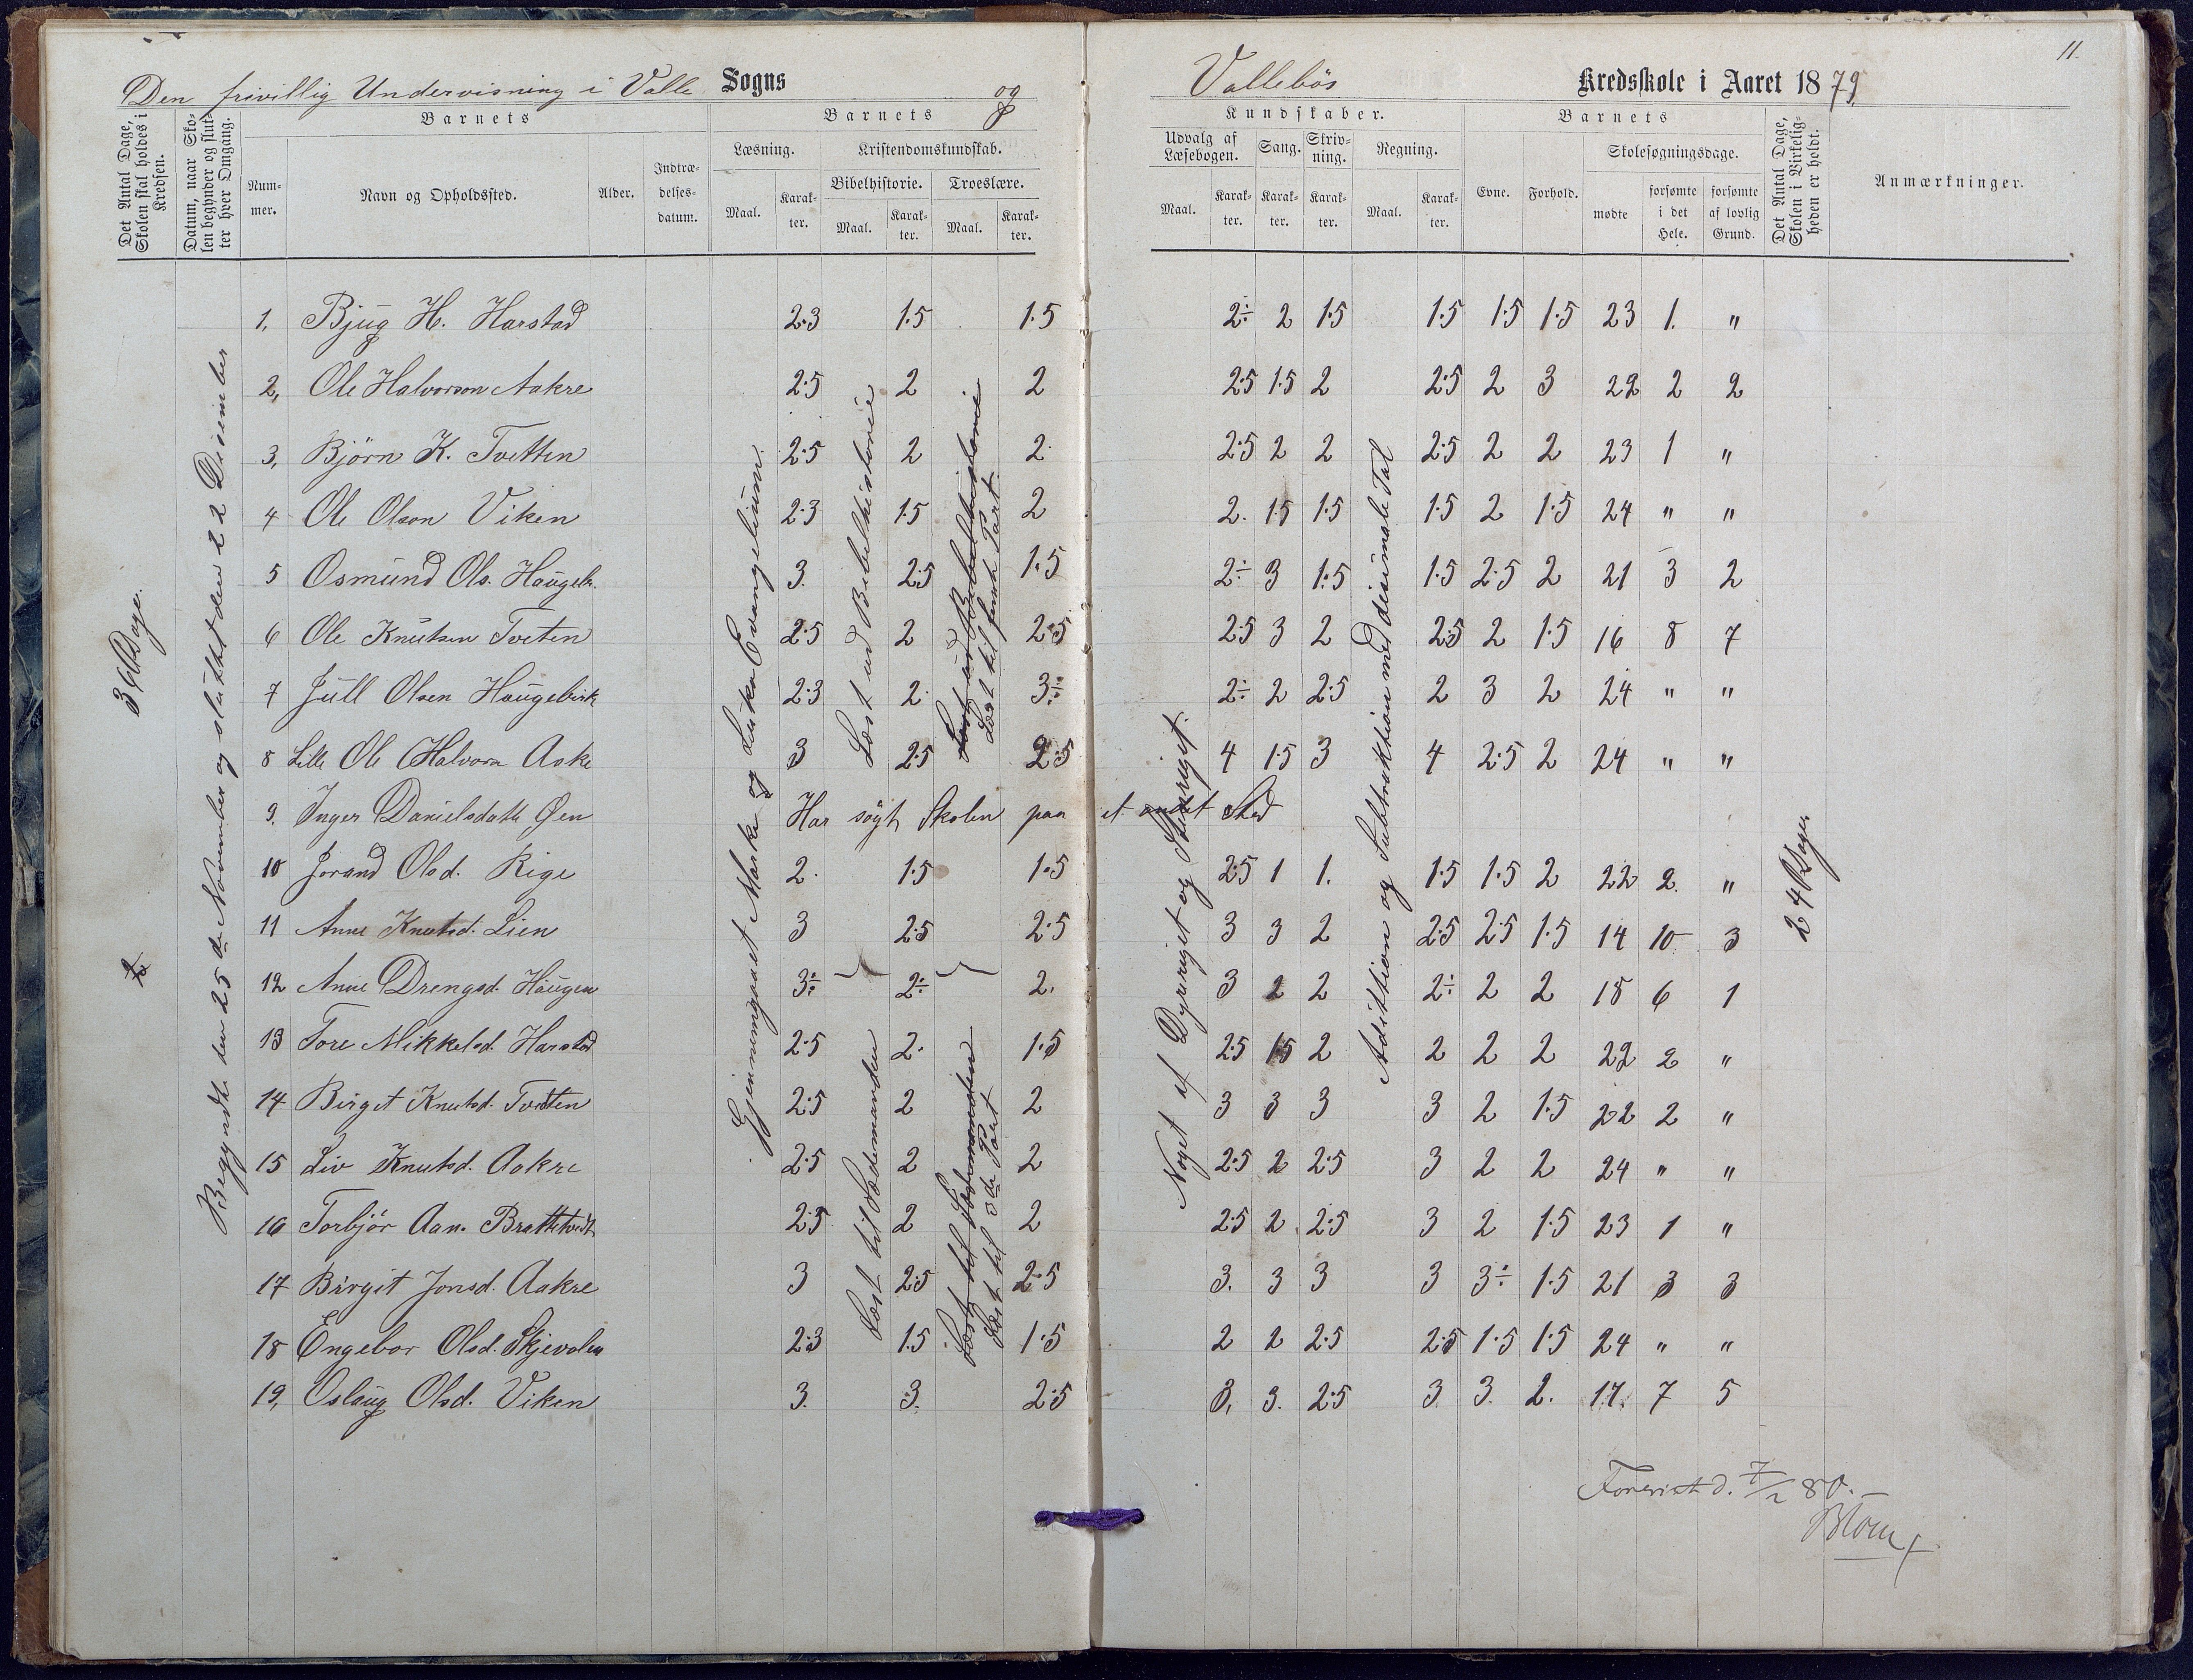 11.
Den frivillig Undervisning i Valle Sogns og Vallebös Kredsskole i Aaret 1879
Det Antal Dage, Skolen skal holdes i Kredsen.
Datum, naar Skolen begynder og slutter hver Omgang.
Barnets
Nummer.
Navn og Opholdssted.
Alder.
Indtrædelsesdatum.
Barnets
Læsning.
Maal.
Karakter.
Kristendomskundskab.
Bibelhistorie.
Maal.
Karakter.
Troeslære.
Maal.
Karakter.
Kundskaber.
Udvalg af Læsebogen.
Maal.
Karakter.
Sang.
Karakter.
Skrivning.
Karakter.
Regning.
Maal.
Karakter.
Barnets
Evne.
Forhold.
Skolesøgningsdage.
mødte
forsømte i det Hele.
forsømte af lovlig Grund.
Det Antal Dage, Skolen i Virkeligheden er holdt.
Anmærkninger.
36 Dage.
Begyndt den 25de November og sluttet den 22 Desember
Gjennemgaaet Marko og Lukas Evangelium.
Læst ud Bibelhistorie
Læst ud Bibelhistorie
Læst til femte Part
Læst til Sædemanden
Læst til Sædemanden
Læst til 3de Part
Noget af Dyreriget og Stenriget.
Addittion og Subtraktion med desimale Tal
24 Dage
1. Bjug H. Harstad 2.3 1.5 1.5 2÷ 2 1.5 1.5 1.5 1.5 23 1. "
2. Ole Halvorson Aakre 2.5 2 2 2.5 1.5 2 2.5 2 3 22 2 2
3. Björn K. Tvetten 2.5 2 2. 2.5 2 2 2.5 2 2 23 1 "
4 Ole Olson Viken 2.3 1.5 2 2. 1.5 1.5 1.5 2 1.5 24 " "
5 Osmund Ols. Haugeb. 3. 2.5 1.5 2÷ 3 1.5 1.5 2.5 2 21 3 2
6 Ole Knutsen Tveten 2.5 2 2.5 2.5 3 2 2.5 2 1.5 16 8 7
7 Jull Olsen Haugebirk 2.3 2. 3÷ 2÷ 2 2.5 2 3 2 24 " "
8 Lille Ole Halvorn Aake 3 2.5 2.5 4 1.5 3 4 2.5 2 24 " "
9. Inger Danielsdatt Øen Har søgt Skolen paa et andet Sted
10 Jorand Olsd. Rige 2. 1.5 1.5 2.5 1 1. 1.5 1.5 2 22 2. "
11 Anne Knutsd. Lien 3 2.5 2.5 3 3 2 2.5 2.5 1.5 14 10 3
12 Anne Drengsd. Haugen 3÷ 2÷ 2. 3 2 2 2÷ 2 2 18 6 1
13 Tore Mikkelsd. Harstad 2.5 2. 1.5 2.5 1.5 2 2 2 2 22 2 "
14 Birgit Knutsd. Tvetten 2.5 2 2 3 3 3 3 2 1.5 22 2 "
15 Liv Knutsd. Aakre 2.5 2 2 2.5 2 2.5 3 2 2 24 " "
16 Torbjör Aan. Brattetveit 2.5 2 2 2.5 2 2.5 3 2 1.5 23 1 "
17 Birgit Jonsd. Aakre 3 2.5 2.5 3. 3 3 3 3÷ 1.5 21 3 3
18 Engebor Olsd. Skjevalen 2.3 1.5 1.5 2 2 2.5 2.5 1.5 1.5 24 " "
19. Oslaug Olsd. Viken 3. 3. 2.5 3. 3. 2.5 3. 3. 2. 17. 7 5
Forevist d. 7/2 80.
Blom